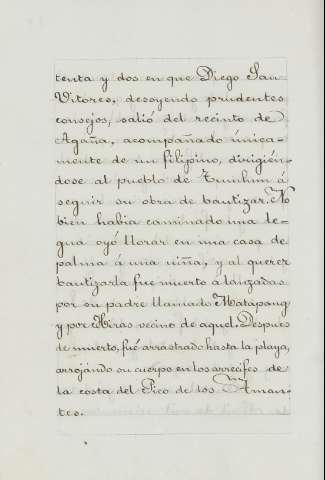 tenta y dos en que Diego San
Vitores, desoyendo prudentes
consejos, salió del recinto de
Agaña, acompañado única-
mente de un filipino, dirigién-
dose al pueblo de Tumhun á
seguir su obra de bautizar. No
bien habia caminado una le-
gua oyó llorar en una casa de
palma á una niña, y al querer
bautizarla fue muerto á lanzadas
por su padre llamado Matapang
y por Hiras vecino de aquel. Despues
de muerto, fué arrastrado hasta la playa,
arrojándo su cuerpo en los arrecifes de
la costa del Pico de los Aman-
tes.